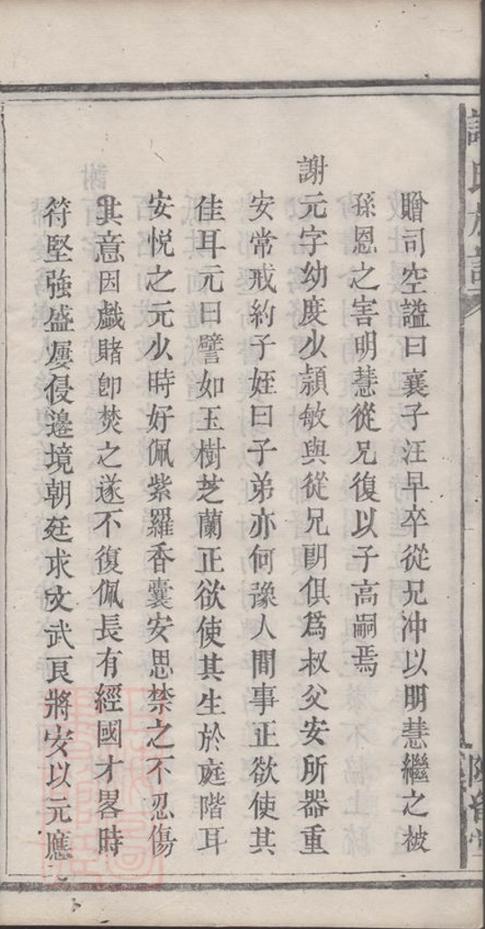 贈司空謚曰襄子汪早卒從兄沖以明慧繼之被
孫恩之害明慧從兄復以子高嗣焉
謝元字幼度少頴敏與從兄朗俱爲叔父安所器重
安常戒約子姪曰子弟亦何豫人間事正欲使其
佳耳元曰譬如玉樹芝蘭正欲使其生於庭階耳
安悅之元少時好佩紫羅香囊安思禁之不忍傷
其意因戲賭卽焚之遂不復佩長有經國才畧時
符堅強盛屢侵邊境朝廷求文武良將安以元應